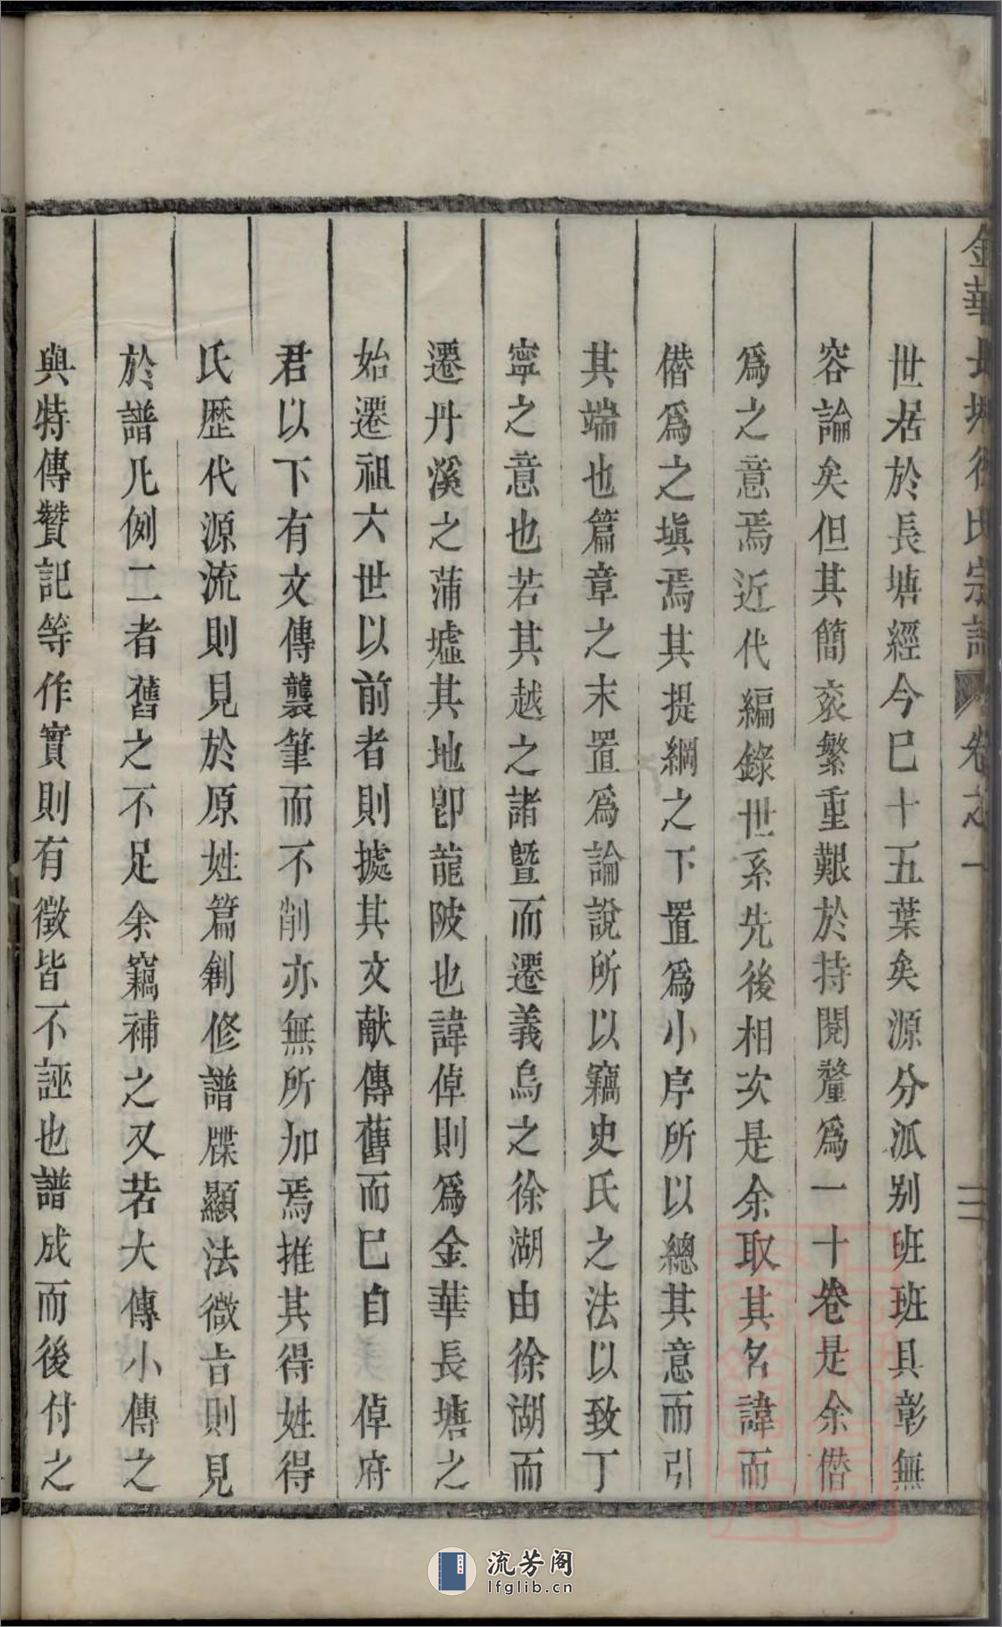 金華長塘徐氏宗譜 卷之一 三
世居於長塘經今巳十五葉矣源分派别班班具彰無
容論矣但其簡衮繁重艱於持閱釐爲一十卷是余僭
爲之意焉近代編錄世系先後相次是余取其名諱而
僭爲之塡焉其提綱之下置爲小序所以總其意而引
其端也篇章之末置爲論說所以竊史氏之法以致丁
寧之意也若其越之諸曁而遷義烏之徐湖由徐湖而
遷丹溪之蒲墟其地卽龍陂也諱倬則爲金華長塘之
始遷祖六世以前者則據其文献傳舊而巳自 倬府
君以下有文傳襲筆而不削亦無所加焉推其得姓得
氏歷代源流則見於原姓篇剙修譜牒顯法微旨則見
於譜凡例二者舊之不足余竊補之又若大傳小傳之
與特傳贊記等作實則有徵皆不誣也譜成而後付之
流芳阁
lfglib.cn